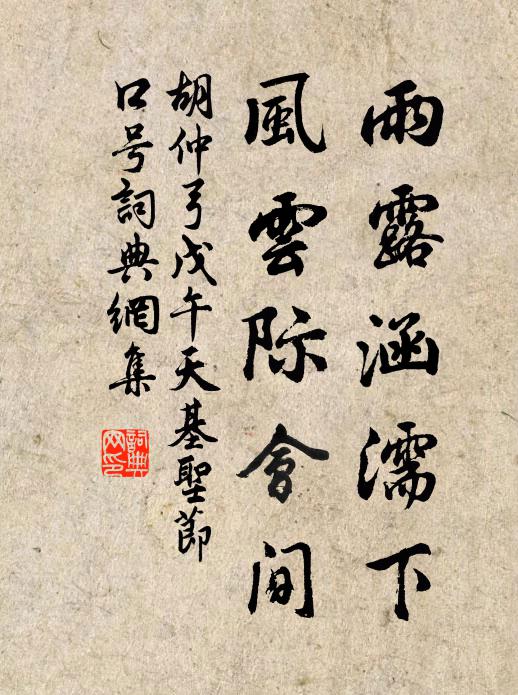 雨露涵濡下
風雲际會间
胡仲弓戊午天基聖節
口号詞典網集
詞典网印